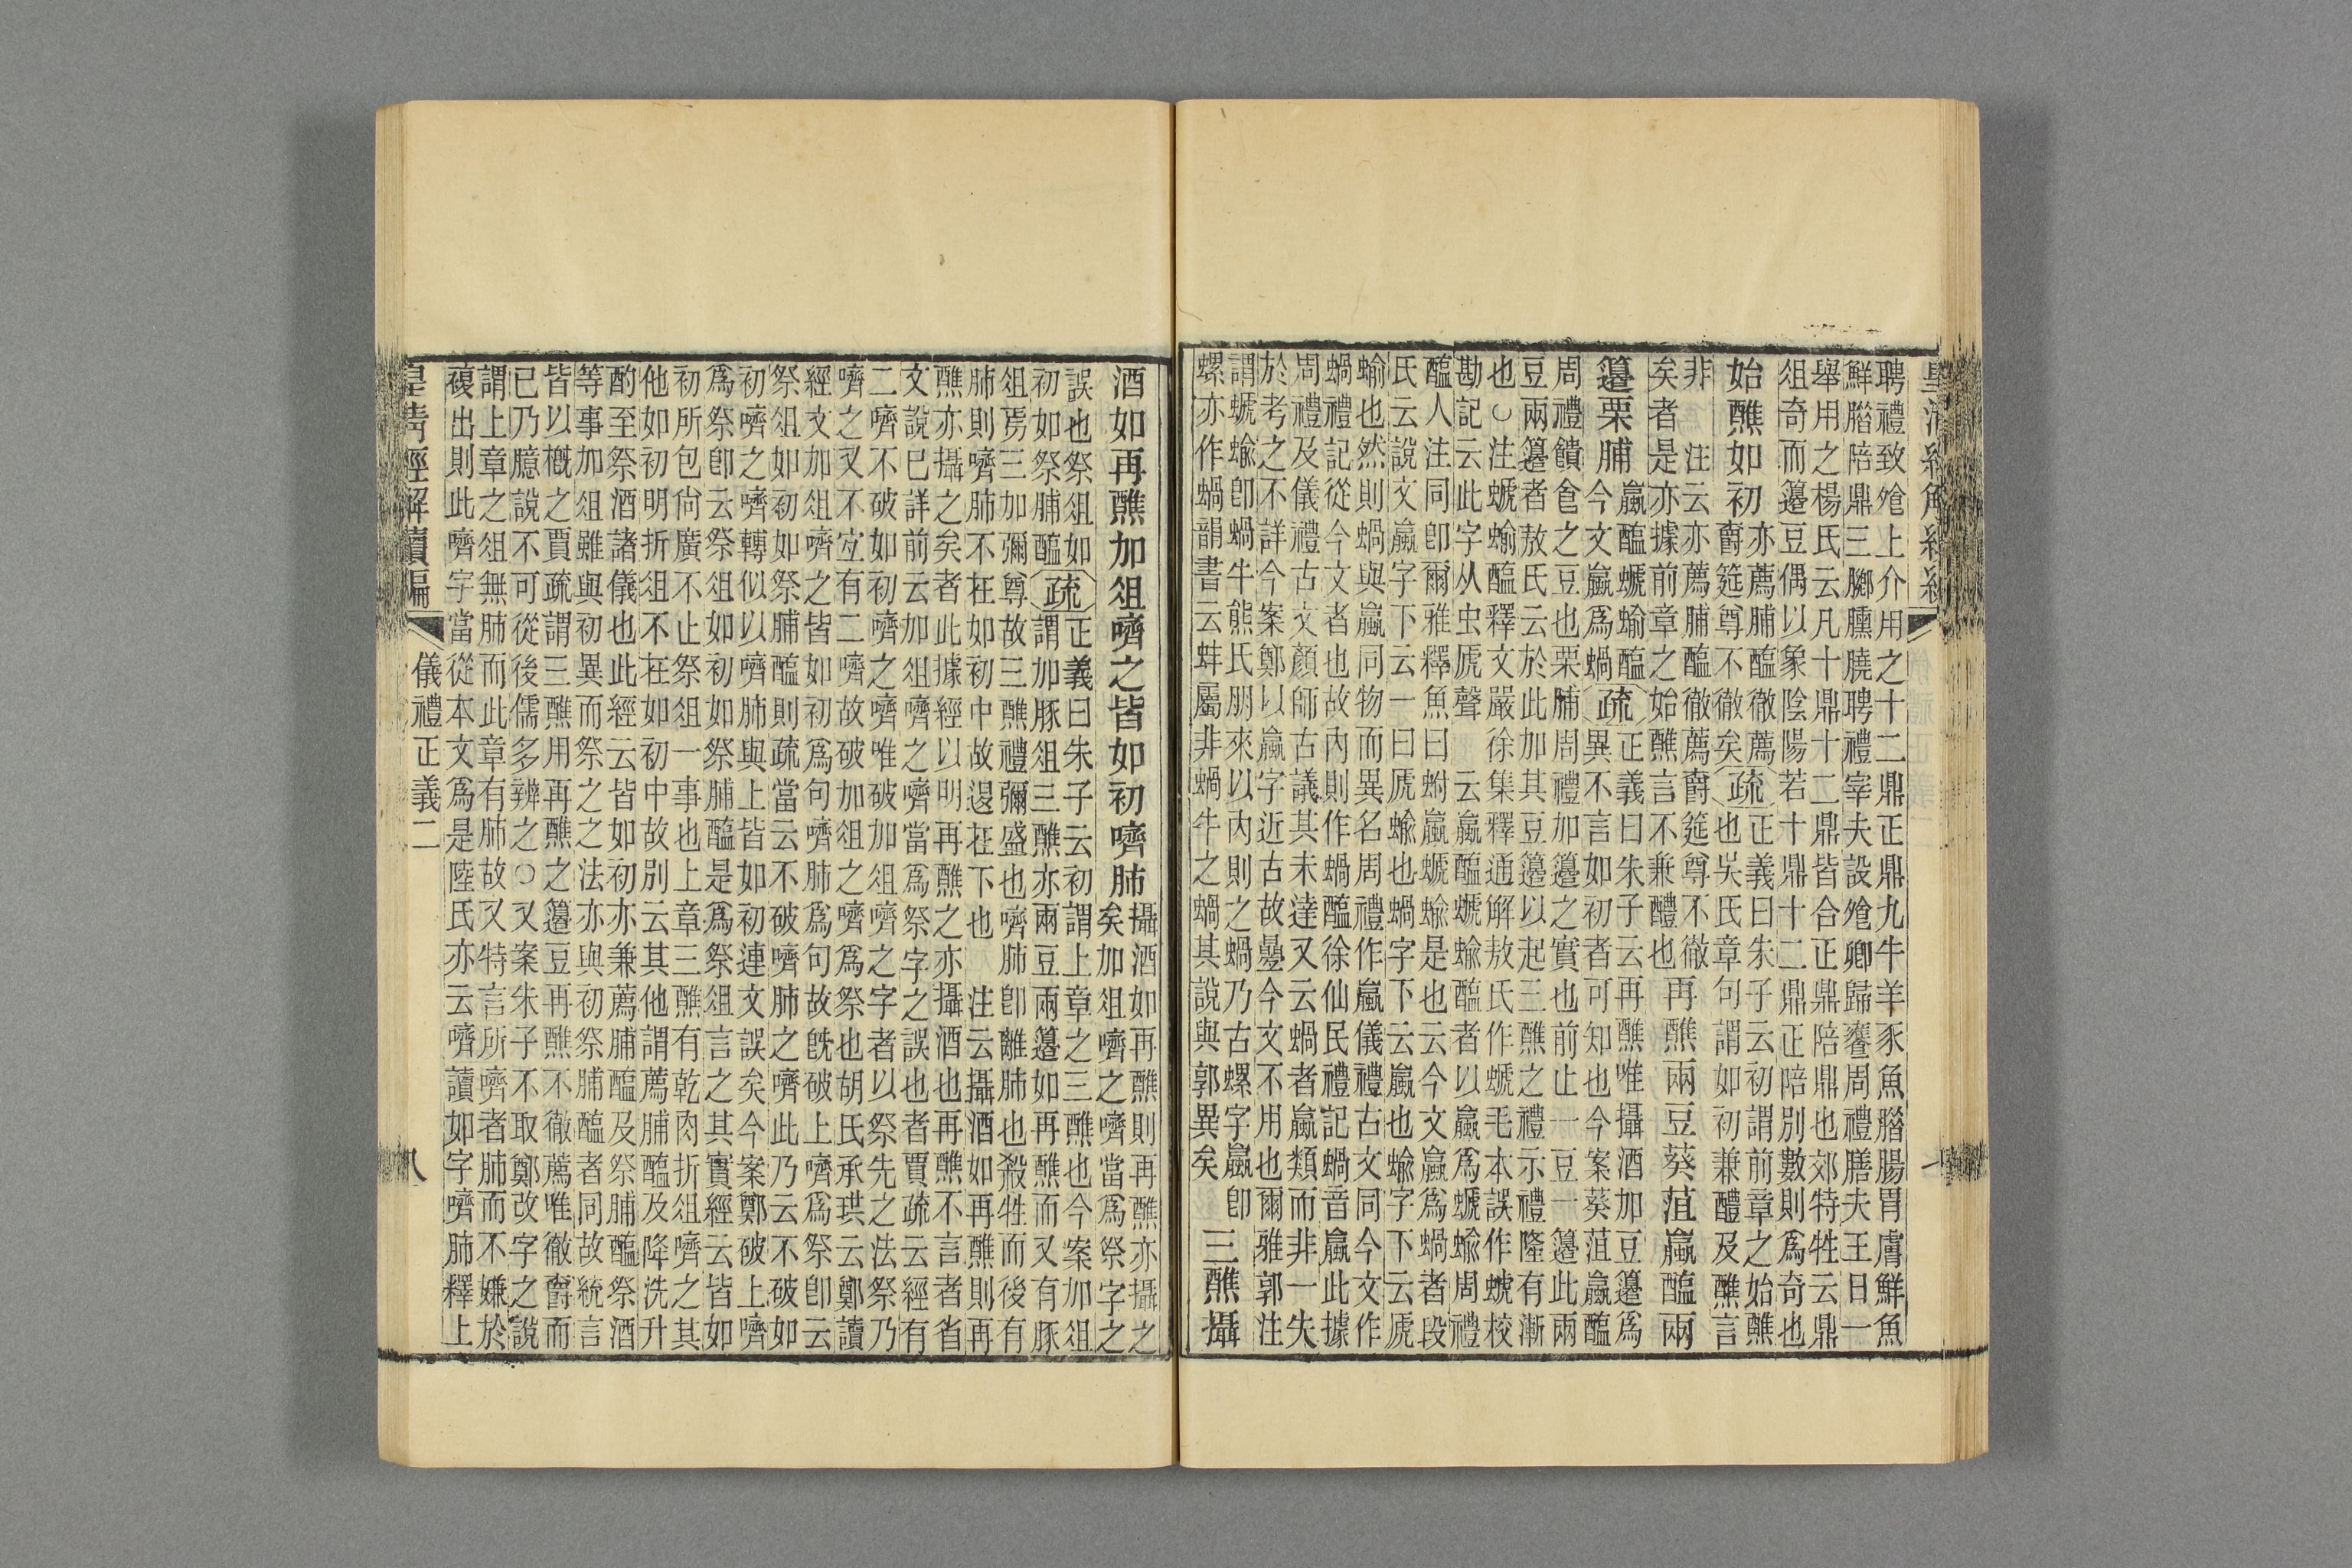 聘禮致飧上介用之十二鼎正鼎九牛羊豕魚腊腸胃膚鮮魚
鮮腊陪鼎三膷臐膮聘禮宰夫設飧卿歸饔周禮膳夫王日一
舉用之楊氏云凡十鼎十二鼎皆合正鼎陪鼎也郊特牲云鼎
俎奇而籩豆偶以象陰陽若十鼎十二鼎正陪別數則爲奇也
始醮如初
亦薦脯醢徹薦
爵筵尊不徹矣
疏
正義曰朱子云初謂前章之始醮
也吳氏章句謂如初兼醴及醮言
非　注云亦薦脯醢徹薦爵筵尊不徹
矣者是亦據前章之始醮言不兼醴也
再醮兩豆葵菹蠃醢兩
籩栗脯
蠃醢螔蝓醢
今文蠃爲蝸
疏
正義曰朱子云再醮唯攝酒加豆籩爲
異不言如初者可知也今案葵菹蠃醢
周禮饋食之豆也栗脯周禮加籩之實也前止一豆一籩此兩
豆兩籩者敖氏云於此加其豆籩以起三醮之禮示禮隆有漸
也○注螔蝓醢釋文嚴徐集釋通解敖氏作螔毛本誤作校
勘記云此字从虫虒聲　云蠃醢螔蝓醢者以蠃爲螔蝓周禮
醢人注同卽爾雅釋魚曰蚹蠃螔蝓是也云今文蠃爲蝸者段
氏云說文蠃字下云一曰虒蝓也蝸字下云蠃也蝓字下云虒
蝓也然則蝸與蠃同物而異名周禮作蠃儀禮古文同今文作
蝸禮記從今文者也故內則作蝸醢徐仙民禮記蝸音蠃此據
周禮及儀禮古文顏師古議其未達又云蝸者蠃類而非一失
於考之不詳今案鄭以蠃字近古故疊今文不用也爾雅郭注
謂螔蝓卽蝸牛熊氏朋來以內則之蝸乃古螺字蠃卽
螺亦作蝸韻書云蚌屬非蝸牛之蝸其說與郭異矣
三醮攝
酒如再醮加俎嚌之皆如初嚌肺
攝酒如再醮則再醮亦攝之
矣加俎嚌之嚌當爲祭字之
誤也祭俎如
初如祭脯醢
疏
正義曰朱子云初謂上章之三醮也今案加俎
謂加豚俎三醮亦兩豆兩籩如再醮而又有豚
俎焉三加彌尊故三醮禮彌盛也嚌肺卽離肺也殺牲而後有
肺則嚌肺不在如初中故退在下也　注云攝酒如再醮則再
醮亦攝之矣者此據經以明再醮之亦攝酒也再醮不言者省
文說已詳前云加俎嚌之嚌當爲祭字之誤也者賈疏云經有
二嚌不破如初嚌之嚌唯破加俎嚌之字者以祭先之法祭乃
嚌之又不宜有二嚌故破加俎之嚌爲祭也胡氏承珙云鄭讀
經文加俎嚌之皆如初爲句嚌肺爲句故旣破上嚌爲祭卽云
祭俎如初如祭脯醢則疏當云不破嚌肺之嚌此乃云不破如
初嚌之嚌轉似以嚌肺與上皆如初連文誤矣今案鄭破上嚌
爲祭卽云祭俎如初如祭脯醢是爲祭俎言之其實經云皆如
初所包尙廣不止祭俎一事也上章三醮有乾肉折俎嚌之其
他如初明折俎不在如初中故別云其他謂薦脯醢及降洗升
酌至祭酒諸儀也此經云皆如初亦兼薦脯醢及祭脯醢祭酒
等事加俎雖與初異而祭之之法亦與初祭脯醢者同故統言
皆以槪之賈疏謂三醮用再醮之籩豆再醮不徹薦唯徹爵而
已乃臆說不可從後儒多辨之○又案朱子不取鄭改字之說
謂上章之俎無肺而此章有肺故又特言所嚌者肺而不嫌於
複出則此嚌字當從本文爲是陸氏亦云嚌讀如字嚌肺釋上
皇清經解續編　儀禮正義二　八